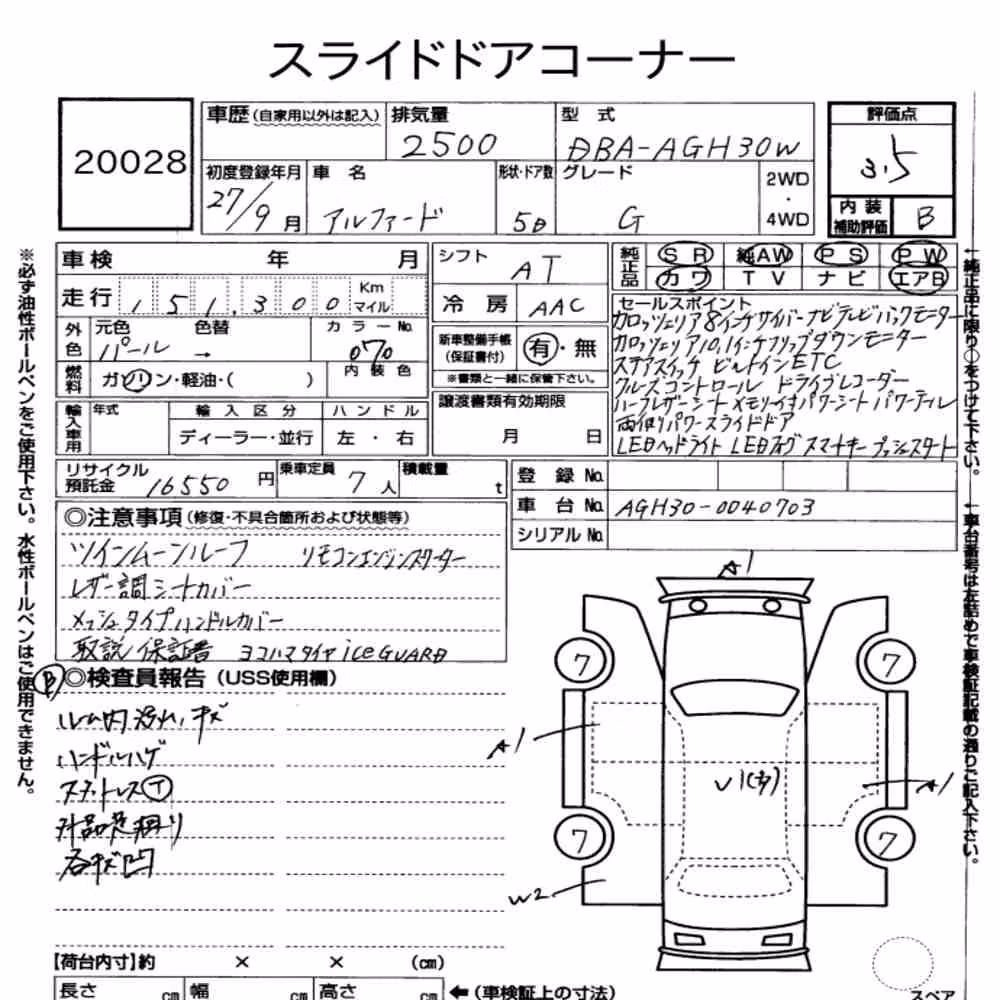 スライドドアコーナー
20028
車歴(自家用以外は記入)
排気量
2500
型 式
DBA-AGH30W
評価点
3.5
初度登録年月
27/9月
車 名
アルファード
形状・ドア数
5D
グレード
G
2WD
・
4WD
内 装
補助評価
B
車検 年 月
シフト
AT
純正品
SR 純AW PS PW
カワ TV ナビ エアB
走行 151,300 Km
マイル
冷 房
AAC
外色
元色
パール
色替
→
カラーNo.
070
内装色
燃料
ガソリン・軽油・( )
新車整備手帳
(保証書付)
有・無
※書類と一緒に保管下さい。
輸入車用
年式
輸入区分
ディーラー・並行
ハンドル
左・右
譲渡書類有効期限
月 日
セールスポイント
カロッツェリア8インチサイバーナビテレビバックモニター
カロッツェリア10.1インチフリップダウンモニター
ステアスイッチ ビルトインETC
クルーズコントロール ドライブレコーダー
ハーフレザーシート メモリ付パワーシート パワーテール
両側パワースライドドア
LEDヘッドライト LEDフォグ スマートキー プッシュスタート
リサイクル
預託金
16550円
乗車定員
7人
積載量
t
登録No.
車台No.
AGH30-0040703
シリアルNo.
◎注意事項(修復・不具合箇所および状態等)
ツインムーンルーフ リモコンエンジンスターター
レザー調シートカバー
メッシュタイプハンドルカバー
取説 保証書 ヨコハマタイヤiceGUARD
B
◎検査員報告(USS使用欄)
ルーム内汚れ、キズ
ハンドルハゲ
スタットレスT
外品足廻り
各キズ凹
A1
7
7
A1
A1
V1(多)
7
7
W2
【荷台内寸】約 × × (cm)
長さ cm 幅 cm 高さ cm
←(車検証上の寸法)
スペア
※必ず油性ボールペンをご使用下さい。水性ボールペンはご使用できません。
←純正品に限り○をつけて下さい。
←車台番号は左詰めで車検証記載の通りご記入下さい。